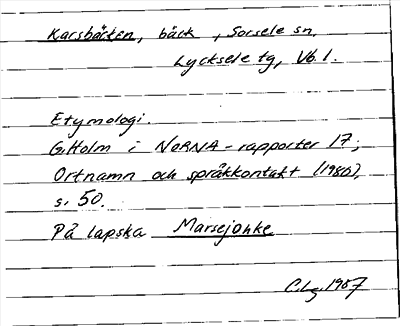 Karsbäcken, bäck, Sorsele sn,
Lycksele tg, Vb. l.
Etymologi.
G. Holm i NORNA-rapporter 17;
Ortnamn och språkkontakt (1980),
s. 50.
På lapska Marsejohke
C. Lg. 1987